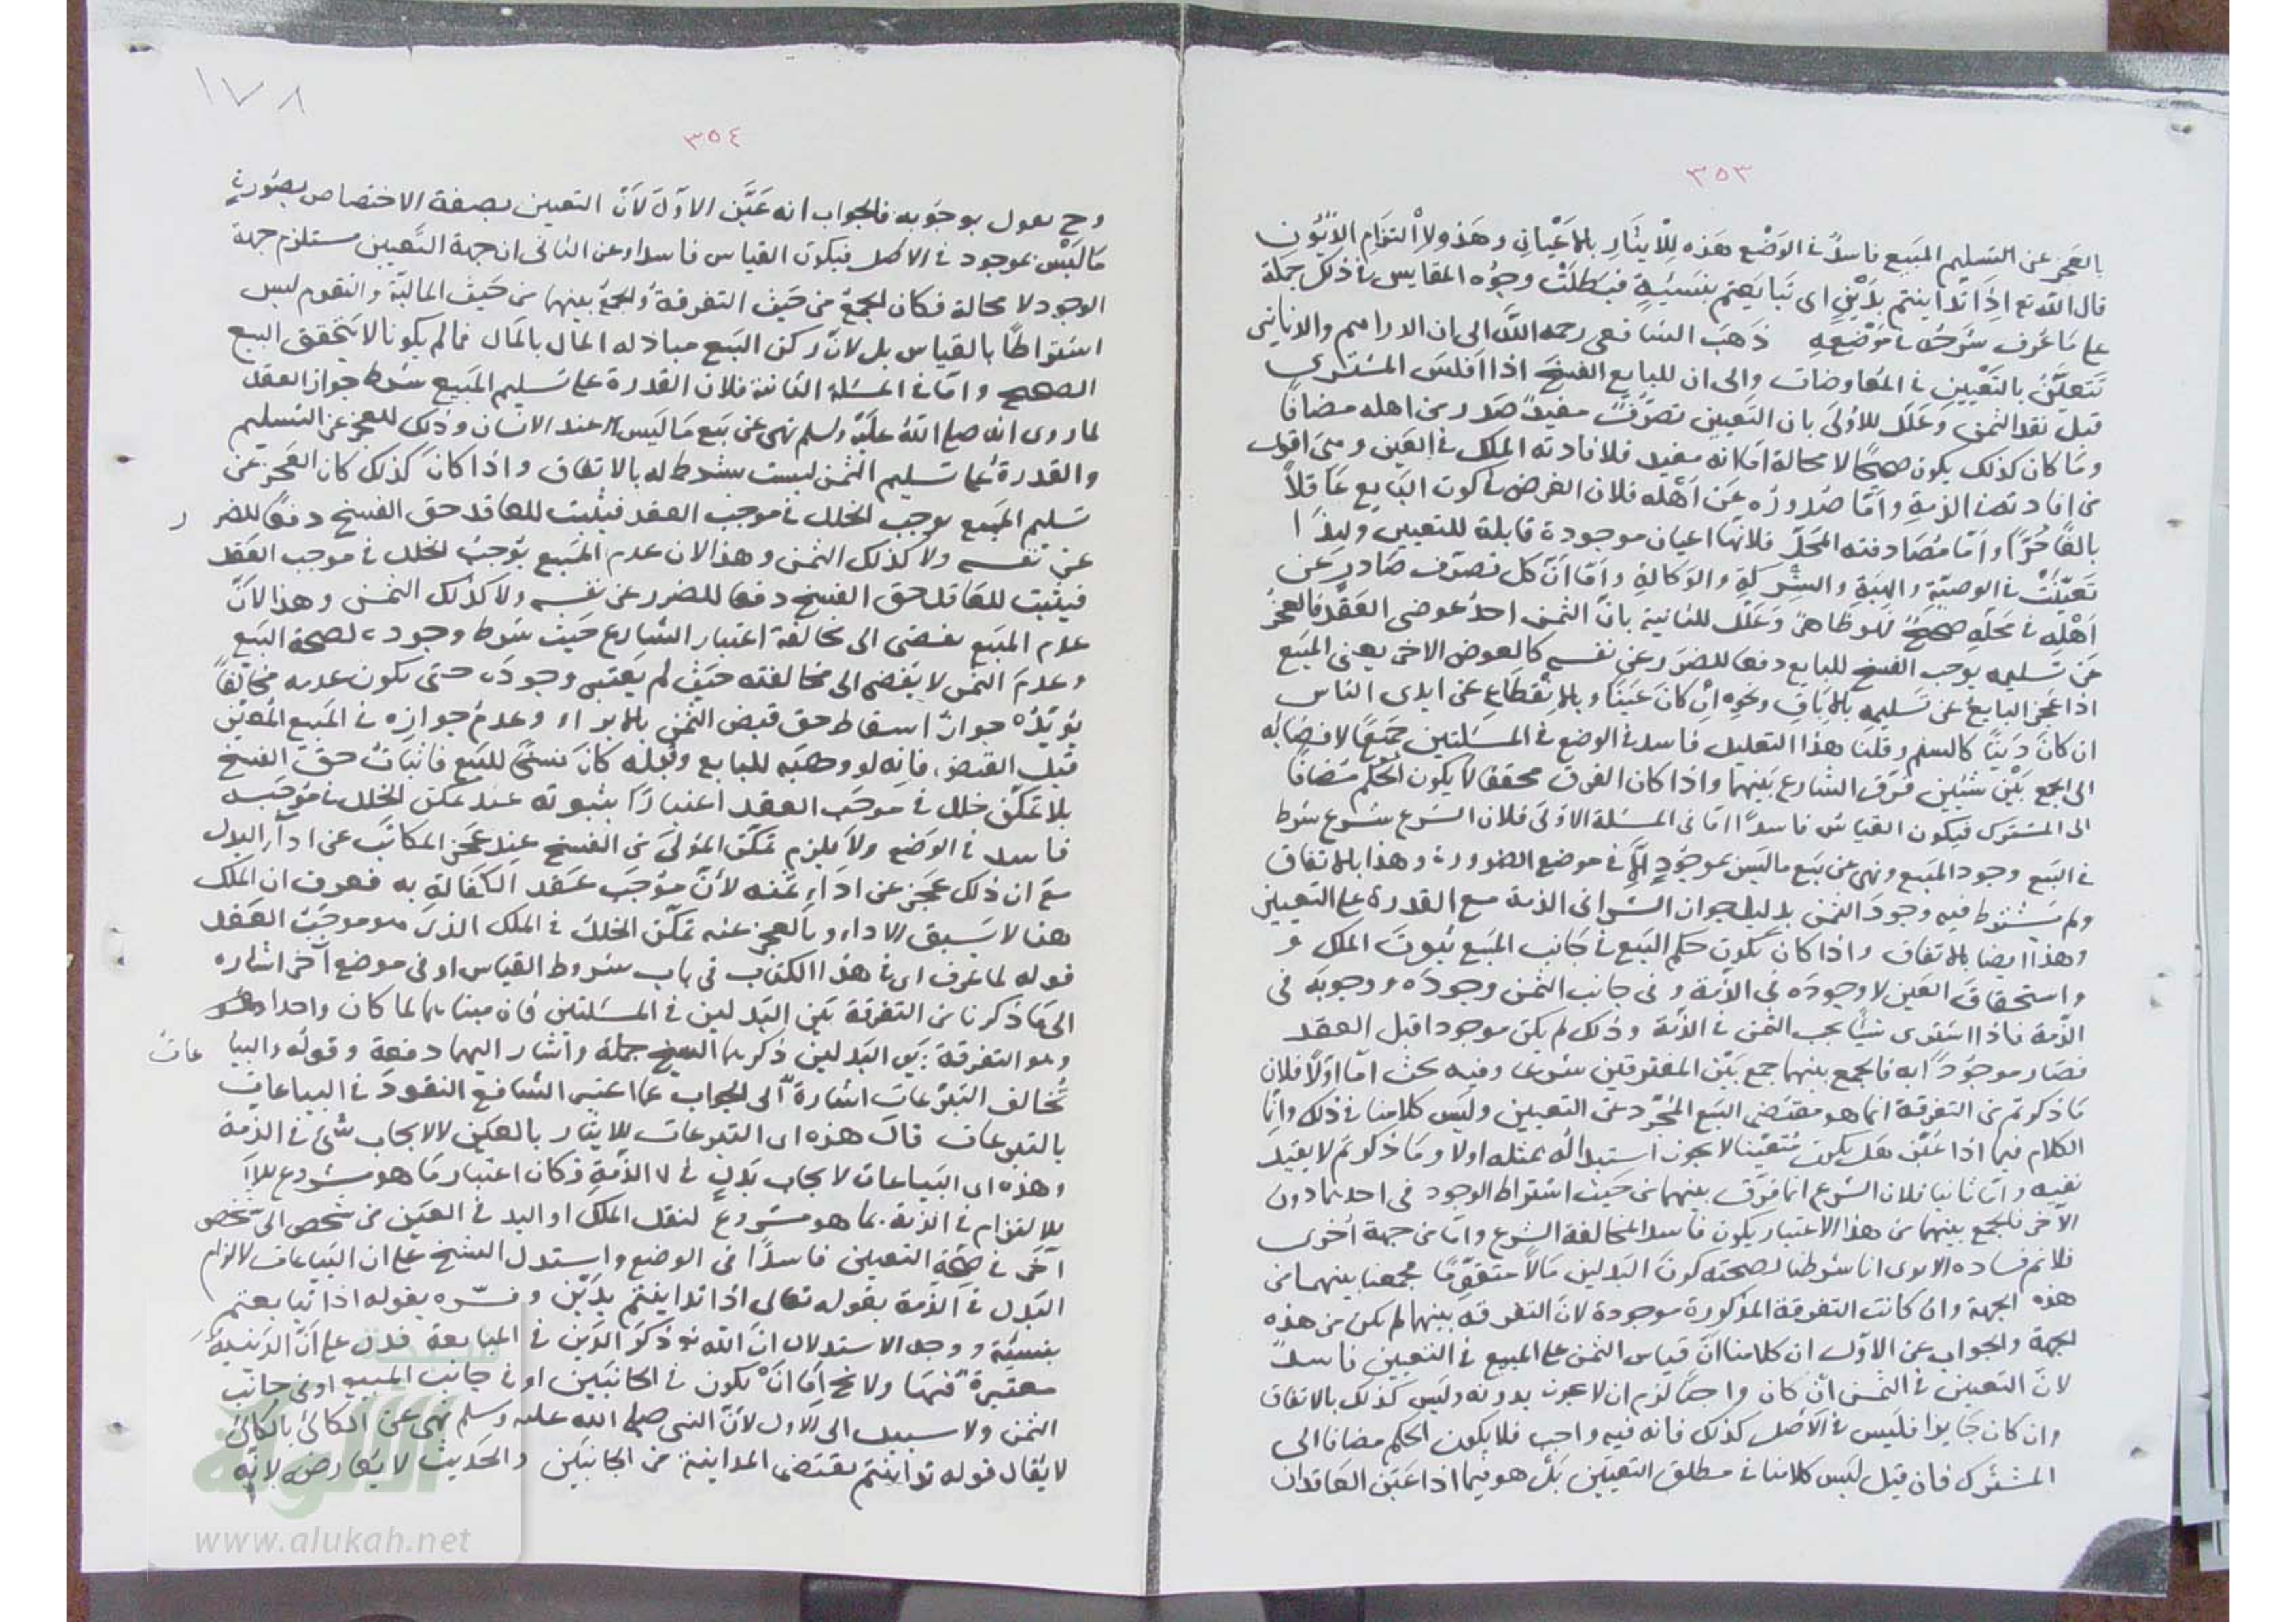 ٣٥٣
بالعجز عن التسليم المبيع فاسدًا في الوَضْع هَذه لِلْايثَارِ بالاَعْيَانِ وهَذه لِاِلْتزَامِ الدّيُونِ
قال الله تع اِذَا تَدَاينتم بدَيْنٍ اى تَبَايَعتم بنَسيْئةٍ فبَطلَتْ وجُوْه المقايس في ذلك جملة
على مَا عُرِف شرحُه في مَوْضعِهِ ذهَبَ الشافعى رحمه اللّه الى ان الدراهم والدنانير
تتعيَّنُ بالتَعْيينِ في المُعاوضات والى ان للبايع الفسخ اذا اَفلَسَ المشترى
قبل نقد الثمن وعَلَّلَ للاُولىَ بان التعيين تصرّفٌ مفيدٌ صَدر من اهله مضافًا
ومَا كان كذلك يكون صحيحًا لا محالة اما انه مفيد فلافادته الملك في العَين ومى اقوى
من افادته في الذمةِ وامّا صُدورُه عَن اَهْله فلان الفرض في كون البَايع عَاقلاً
بالغًا حُرًّا وامّا مُصَادفته المحَلّ فلانهَا اعيان موجودة قابلة للتعيين ولهذا
تعيّنَتْ في الوصيّة والهبَةِ والشركةِ والوَكالةِ وامّا انّ كل تصرّف صَادرٍ عَن
اَهْلِه في مَحَلِّهِ صحيحٌ فهو ظاهرٌ وعَلّل للثانية بانّ الثمن احدُ عوضى العَقْد فالعجزُ
عَن تسليمه يوجب الفسخ للبايع دفعا للضرَر عن نفسه كالعوض الاخر يعنى المبيع
اذا عَجز البايعُ عَن تسليمِه بالاِبَاقِ ونحوِه اِنْ كانَ عَينًا وبالاِنْقطَاعِ عن ايدى الناس
ان كانَ دَينًا كالسلم وقلنا هذا التعليل فاسد في الوضع في المسَلتين جميعًا لافضائه
الى الجمع بَيْن شيئين فرَق الشارع بَينهما واذا كان الفرق محققا لا يكون الحكم مُضافًا
الى المشترك فيكون القياس فاسدًا امّا في المسئلة الاولىَ فلان الشرع شرع شرط
في البَيع وجود المبيع ونهى عن بَيع ماليَس بموجُودٍ اِلاّ في موضع الضرورة وهذا بالاتفاق
ولم يَشتَرط فيه وجودَ الثمن بدليل جوان الشرا في الذمة مع القدرة على التعيين
وهذا ايضا بالاتفاق واذا كان يكون حكم البَيع في جَانب المبيَع ثبوتَ الملك و
واستحقاقَ العَين لا وجودَه في الذمة وفي جانب الثمن وجودَه ووجوبَه في
الذّمة فاذا اشترى شيئًا يجب الثمن في الذّمة وذلك لم يكن موجودا قبل العقد
فصَار موجودًا به فالجمع بينهما جمع بَيْن المفترقين شرعا وفيه بحث امّا اوّلا فلان
مَا ذكرتم من التفرقة انما هو مقتضى البَيع المجرّد عن التعيين وليَس كلامنا في ذلك وانّما
الكلام فيما اذا عَيّن هَل يكون مُتعَيّنا لا يجوز استبدَالُه بمثله اولا ومَا ذكرتم لا يفيد
نفيه وامّا ثانيا فلان الشرع انما فرّق بينهما من حَيث اشتراط الوجود في احدهما دون
الآخر فالجمع بينهما من هذا الاعتبار يكون فاسدًا لمخالفة الشرع وامّا من جهة اُخرى
فلا نم فساده الا يرى انا شرطنا لصحته كونَ البَدلين مَالاً متقوّمًا فجمعنا بينهما من
هذه الجهة وان كانت التفرقة المذكورة موجودة لانّ التفرقة بينهما لم يكن من هذه
الجهة والجواب عن الاوّل ان كلامنا انّ قياس الثمن على المبيع في التعيين فاسدٌ
لانّ التعيين في الثمن ان كان واجبًا لزم ان لا يجوز بدونه وليَس كذلك بالاتفاق
وان كان جَايزا فليَس في الاَصْل كذلك فانه فيه واجب فلا يكون الحكم مضافا الى
المشترَك فان قيل ليَس كلامنا في مطلق التعيين بَلْ هو فيما اذا عَيّن العَاقدان
١٧٨
٣٥٤
وح يعول بوجوبه فالجواب انه عَيَّن الاوّل لاَنّ التعيين بصفة الاختصاص بصُورة
مَا ليَسْ بموجود في الاصل فيكون القياس فاسدا وعن الثانى ان جهة التَعيين مستلزم جهة
الوجود لا محالة فكان الجمعُ من حَيث التفرقة والجمعُ بينهما من حَيث الماليّة والتقوم ليس
اشتراطًا بالقياس بل لانّ ركن البَيع مبادلة المال بالمَال فما لم يكونا لا يتحقق البيع
الصحيح وامّا في المسئلة الثانية فلان القدرة على تسليم المَبيع شرط جواز العقد
لما روى انه صلى اللّهُ عليَه وسلم نهى عن بَيع مَا ليَس عند الانسان وذلك للعجز عن التسليم
والقدرة على تسليم الثمن ليست بشرط له بالاتفاق واذا كان كذلك كان العَجز عن
تسليم المبيع يوجب الخلل في موجب العقد فيثبت للعاقد حق الفسخ دفعًا للضر ر
عن نفسه ولا كذلك الثمن وهذا لان عدم المبيع يوجبُ الخلل في موجب العَقد
فيثبت للعَاقد حق الفسخ دفعا للضرر عن نفسه ولا كذلك الثمن وهذا لانّ
عدم المبيَع يفضى الى مخالفة اعتبار الشارع حَيث شرط وجوده لصحة البَيع
وعدَمَ الثمن لا يفضى الى مخالفته حَيث لم يَعتبر وجودَه حتى يكون عدمه مخالفًا
يُؤيّدُه جوازُ اسقاط حق قبض الثمن بالابراء وعدمُ جوازِه في المَبيع المُعيّن
قبل القبض فانه لو وهَبَه للبايع وقبله كانَ فسخًا للبَيع فاثباتُ حق الفسخ
بلا تمكّن خلل في موجَب العقد اعتبارًا بثبوته عند تمكن الخلل في موجَبه
فاسد في الوَضع ولا يلزم تمكّن المَولىَ من الفسخ عند عَجز المكاتَب عن ادآء البدل
مع ان ذلك عَجزٌ عن ادَاءِ ثمَنه لاَنّ مُوجَبَ عَقد الكتابة به فعرف ان الملك
هنا لا يَسبق الاداء وبالعجز عنه تمكن الخللُ في الملك الذىَ هو موجَبُ العقد
قوله لما عرف اى في هذا الكتاب في باب شروط القياس او في موضع آخر اشاره
الى مَا ذكرنا من التفرقة بَين البَدلين في المسئلتين فان مبناهما لما كان واحدا
وهو التفرقة بَين البَدلين ذكرهما الشيخ جملة واشار اليهما دفعة وقوله والبيا عات
تُخالف التبرّعات اشارة الى الجواب عما اعتبر الشافعى النقودَ في البياعات
بالتبرعات فان هذه اى التبرعات للايثار بالعين لا لايجاب شئ في الذمة
وهذه اى البَياعات لايجاب بَدلٍ في الذمّةِ فكان اعتبار مَا هو مشروع
للالتزام في الذمة بما هو مشروع لنقل الملك او اليد في العَين من شخص الى شخص
آخَر في صحّة التعيين فاسدًا في الوضع واستدل الشيخ على ان البَياعات لالزام
البَدل في الذّمة بقوله تعالى اذا تداينتم بدَيْن وفسّره بقوله اذا تبايعتم
بنسيئة ووجه الاستدلال انّ الله تع ذكرَ الدّين في المبايعة فدل على انّ الدَينيةَ
معتبرة فيهَا ولا يخ امّا انْ يكون في الجانبَين او في جانب المبيع او في جانب
الثمن ولا سبيل الى الاول لاَنّ النبى صلى اللّه عليه وسلم نهى عن الكالئ بالكالئ
لا يُقال قوله تداينتم يقتضى المداينة من الجانبَين والحَديث لا يُعَارضه لانّه
شبكة
الألوكة
www.alukah.net